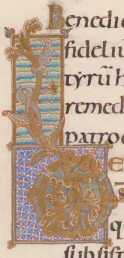 benedic
fidelıu
tyrũ h
remed
patroc
e
s
q
subsist